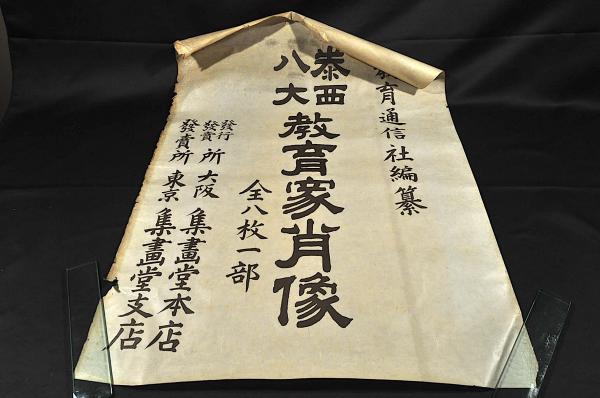 教育通信社編纂
泰西
八大
教育家肖像
全八枚一部
發行
發賣所 大阪 集畫堂本店
發賣所 東京 集畫堂支店